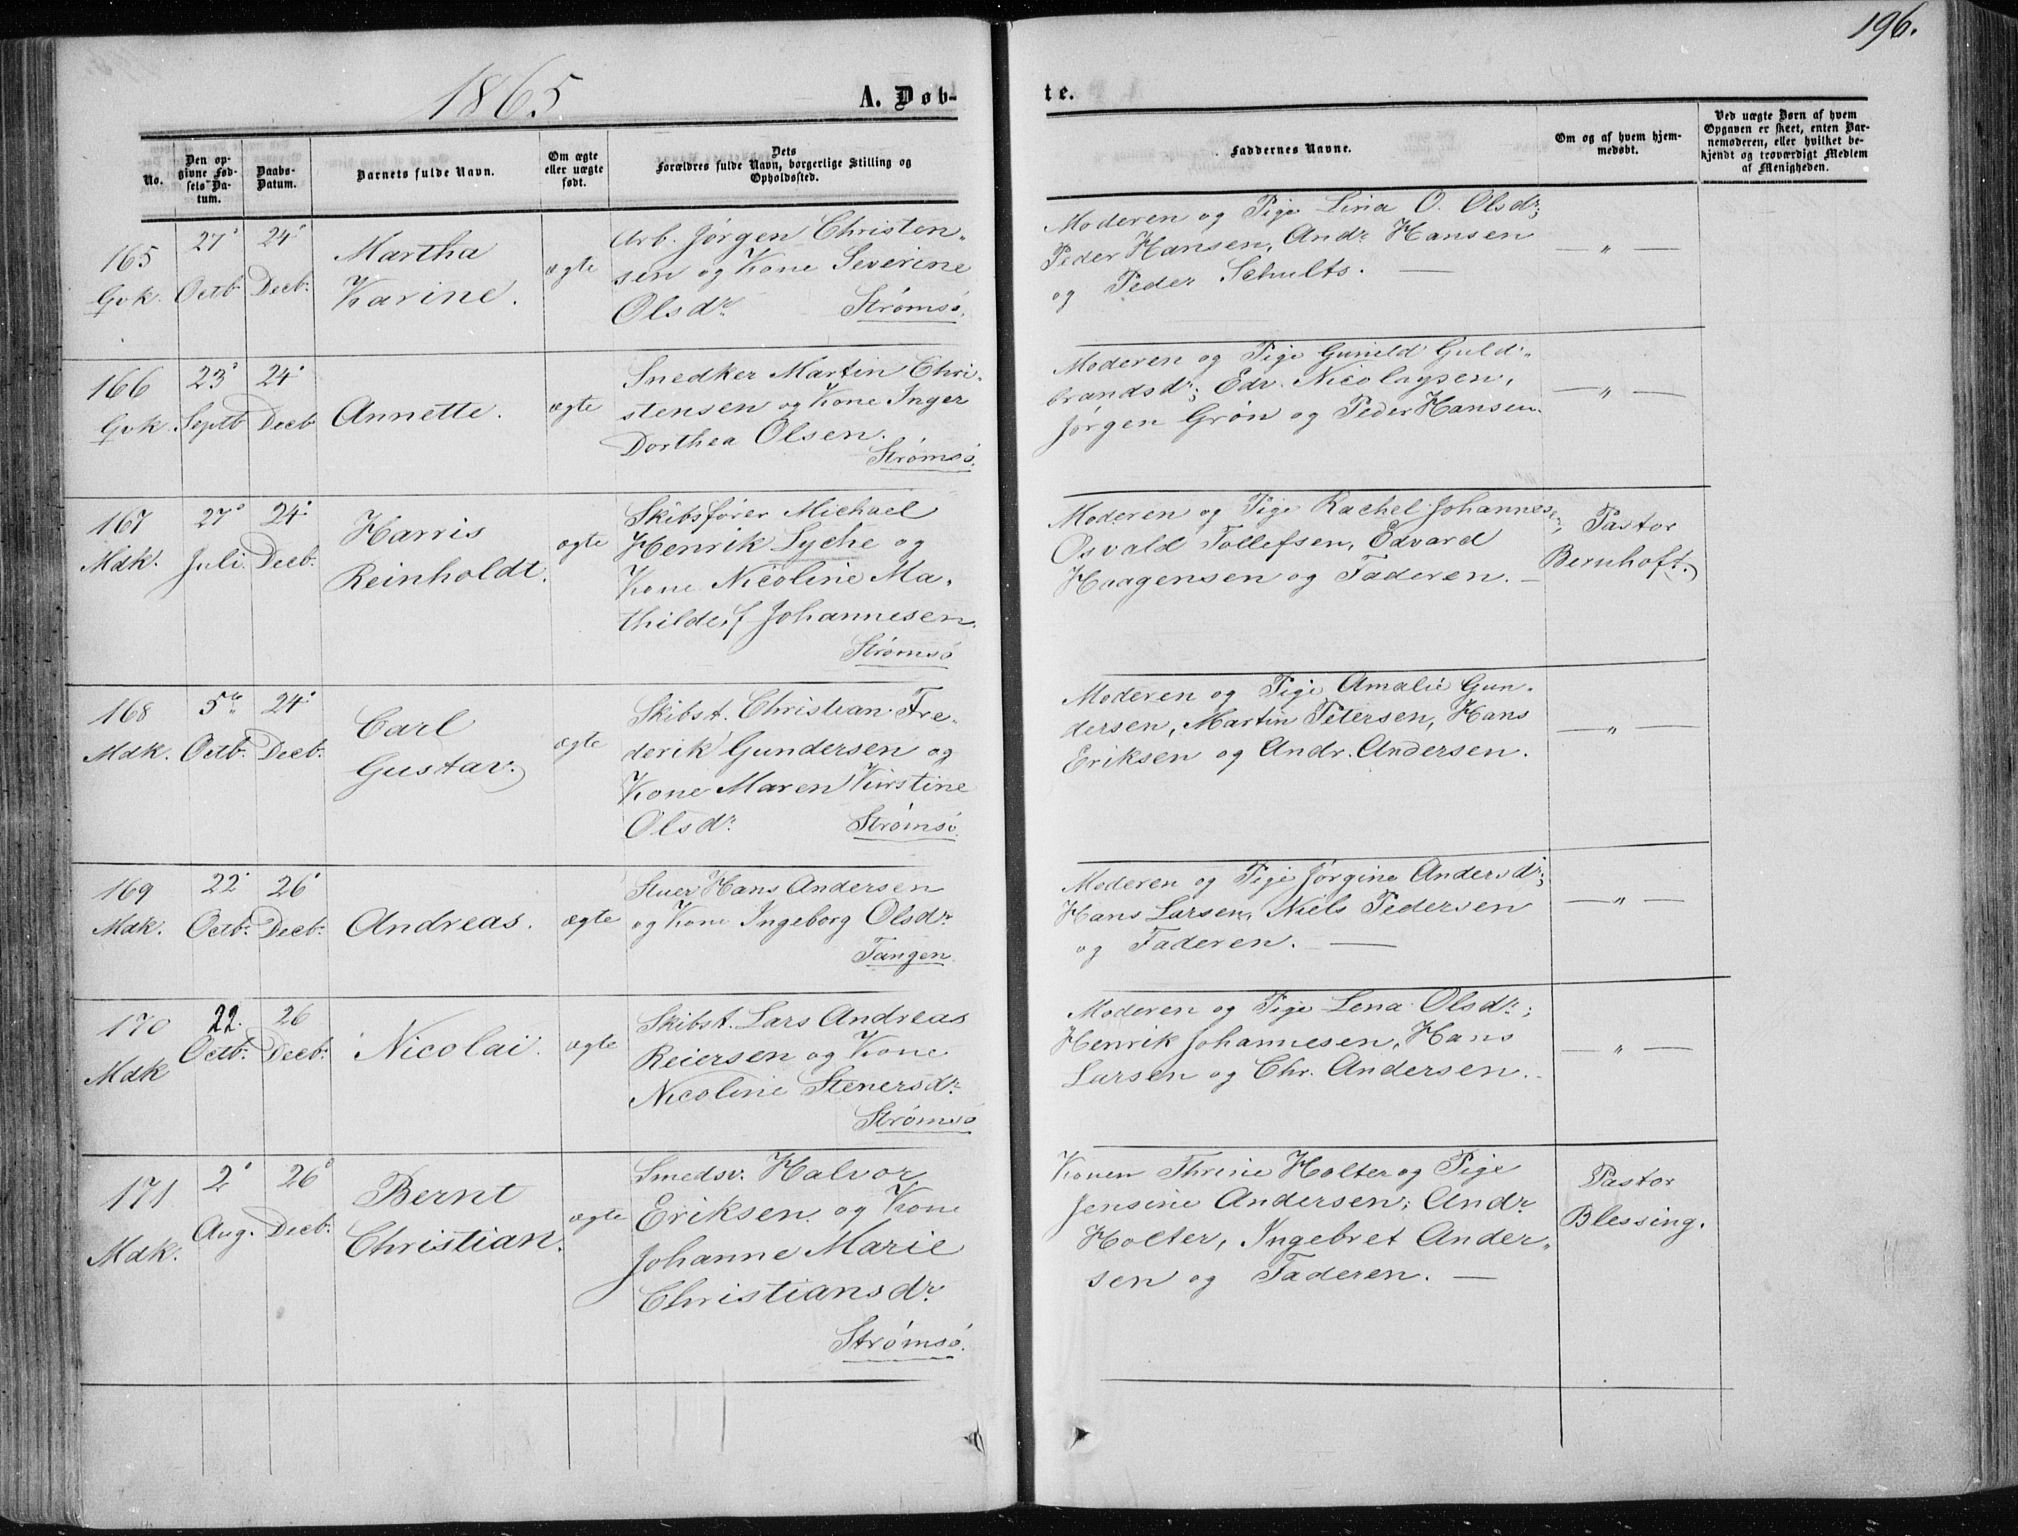 196.
1865
A. Døb-
te.
No.
Den op-
givne Fød-
sels Da-
tum.
Daabs-
Datum.
Barnets fulde Navn.
Om ægte
eller uægte
født.
Dets
Forældres fulde Navn, borgerlige Stilling og
Opholdssted.
Faddernes Navne.
Om og af hvem hjem-
medøbt.
Ved uægte Børn af hvem
Opgaven er skeet, enten Bar-
nemoderen, eller hvilket be-
kjendt og troværdigt Medlem
af Menigheden.
165
Qvk.
27de
Octb.
24de
Decb.
Martha
Karine.
ægte
Arb. Jørgen Christen-
sen og Kone Severine
Olsdr.
Strømsø.
Moderen og Pige Lina O. Olsdr;
Peder Hansen, Andr. Hansen
og Peder Schults. —
— " —
166
Qvk.
23de
Septb
24de
Decb
Annette.
ægte
Snedker Martin Chri-
stensen og Kone Inger
Dorthea Olsen.
Strømsø.
Moderen og Pige Gunild Guld-
brandsdr; Edv. Nicolaysen,
Jørgen Grøn og Peder Hansen.
— " —
167
Mdk.
27de
Juli.
24de
Decb.
Harris
Reinholdt.
ægte
Skibsfører Michael
Henrik Lyche og
Kone Nicoline Ma-
thilde f Johannesen.
Strømsø
Moderen og Pige Rachel Johannes,
Osvald Tollefsen, Edvard
Haagensen og Faderen. —
Pastor
Bernhoft.
168
Mdk.
5te
Octb.
24de
Decb.
Carl
Gustav.
ægte
Skibst. Christian Fre-
derik Gundersen og
Kone Maren Kirstine
Olsdr.
Strømsø.
Moderen og Pige Amalie Gun-
dersen, Martin Petersen, Hans
Eriksen og Andr. Andersen.
— " —
169
Mdk.
22de
Octb.
26de
Decb.
Andreas.
ægte
Stuer Hans Andersen
og Kone Ingeborg Olsdr.
Tangen.
Moderen og Pige Jørgine Andersdr;
Hans Larsen, Niels Pedersen
og Faderen. —
— " —
170
Mdk
22.
Octb.
26
Decb.
Nicolai.
ægte
Skibst. Lars Andreas
Reiersen og Kone
Nicoline Stenersdr.
Strømsø
Moderen og Pige Lena Olsdr.;
Henrik Johannesen, Hans
Larsen og Chr. Andersen.
— " —
171
Mdk.
2de
Aug.
26de
Decb.
Bernt
Christian.
ægte
Smedsv. Halvor
Eriksen og Kone
Johanne Marie
Christiansdr.
Strømsø.
Konen Thrine Holter og Pige
Jensine Andersen; Andr.
Holter, Ingebret Ander-
sen og Faderen. —
Pastor
Blessing.